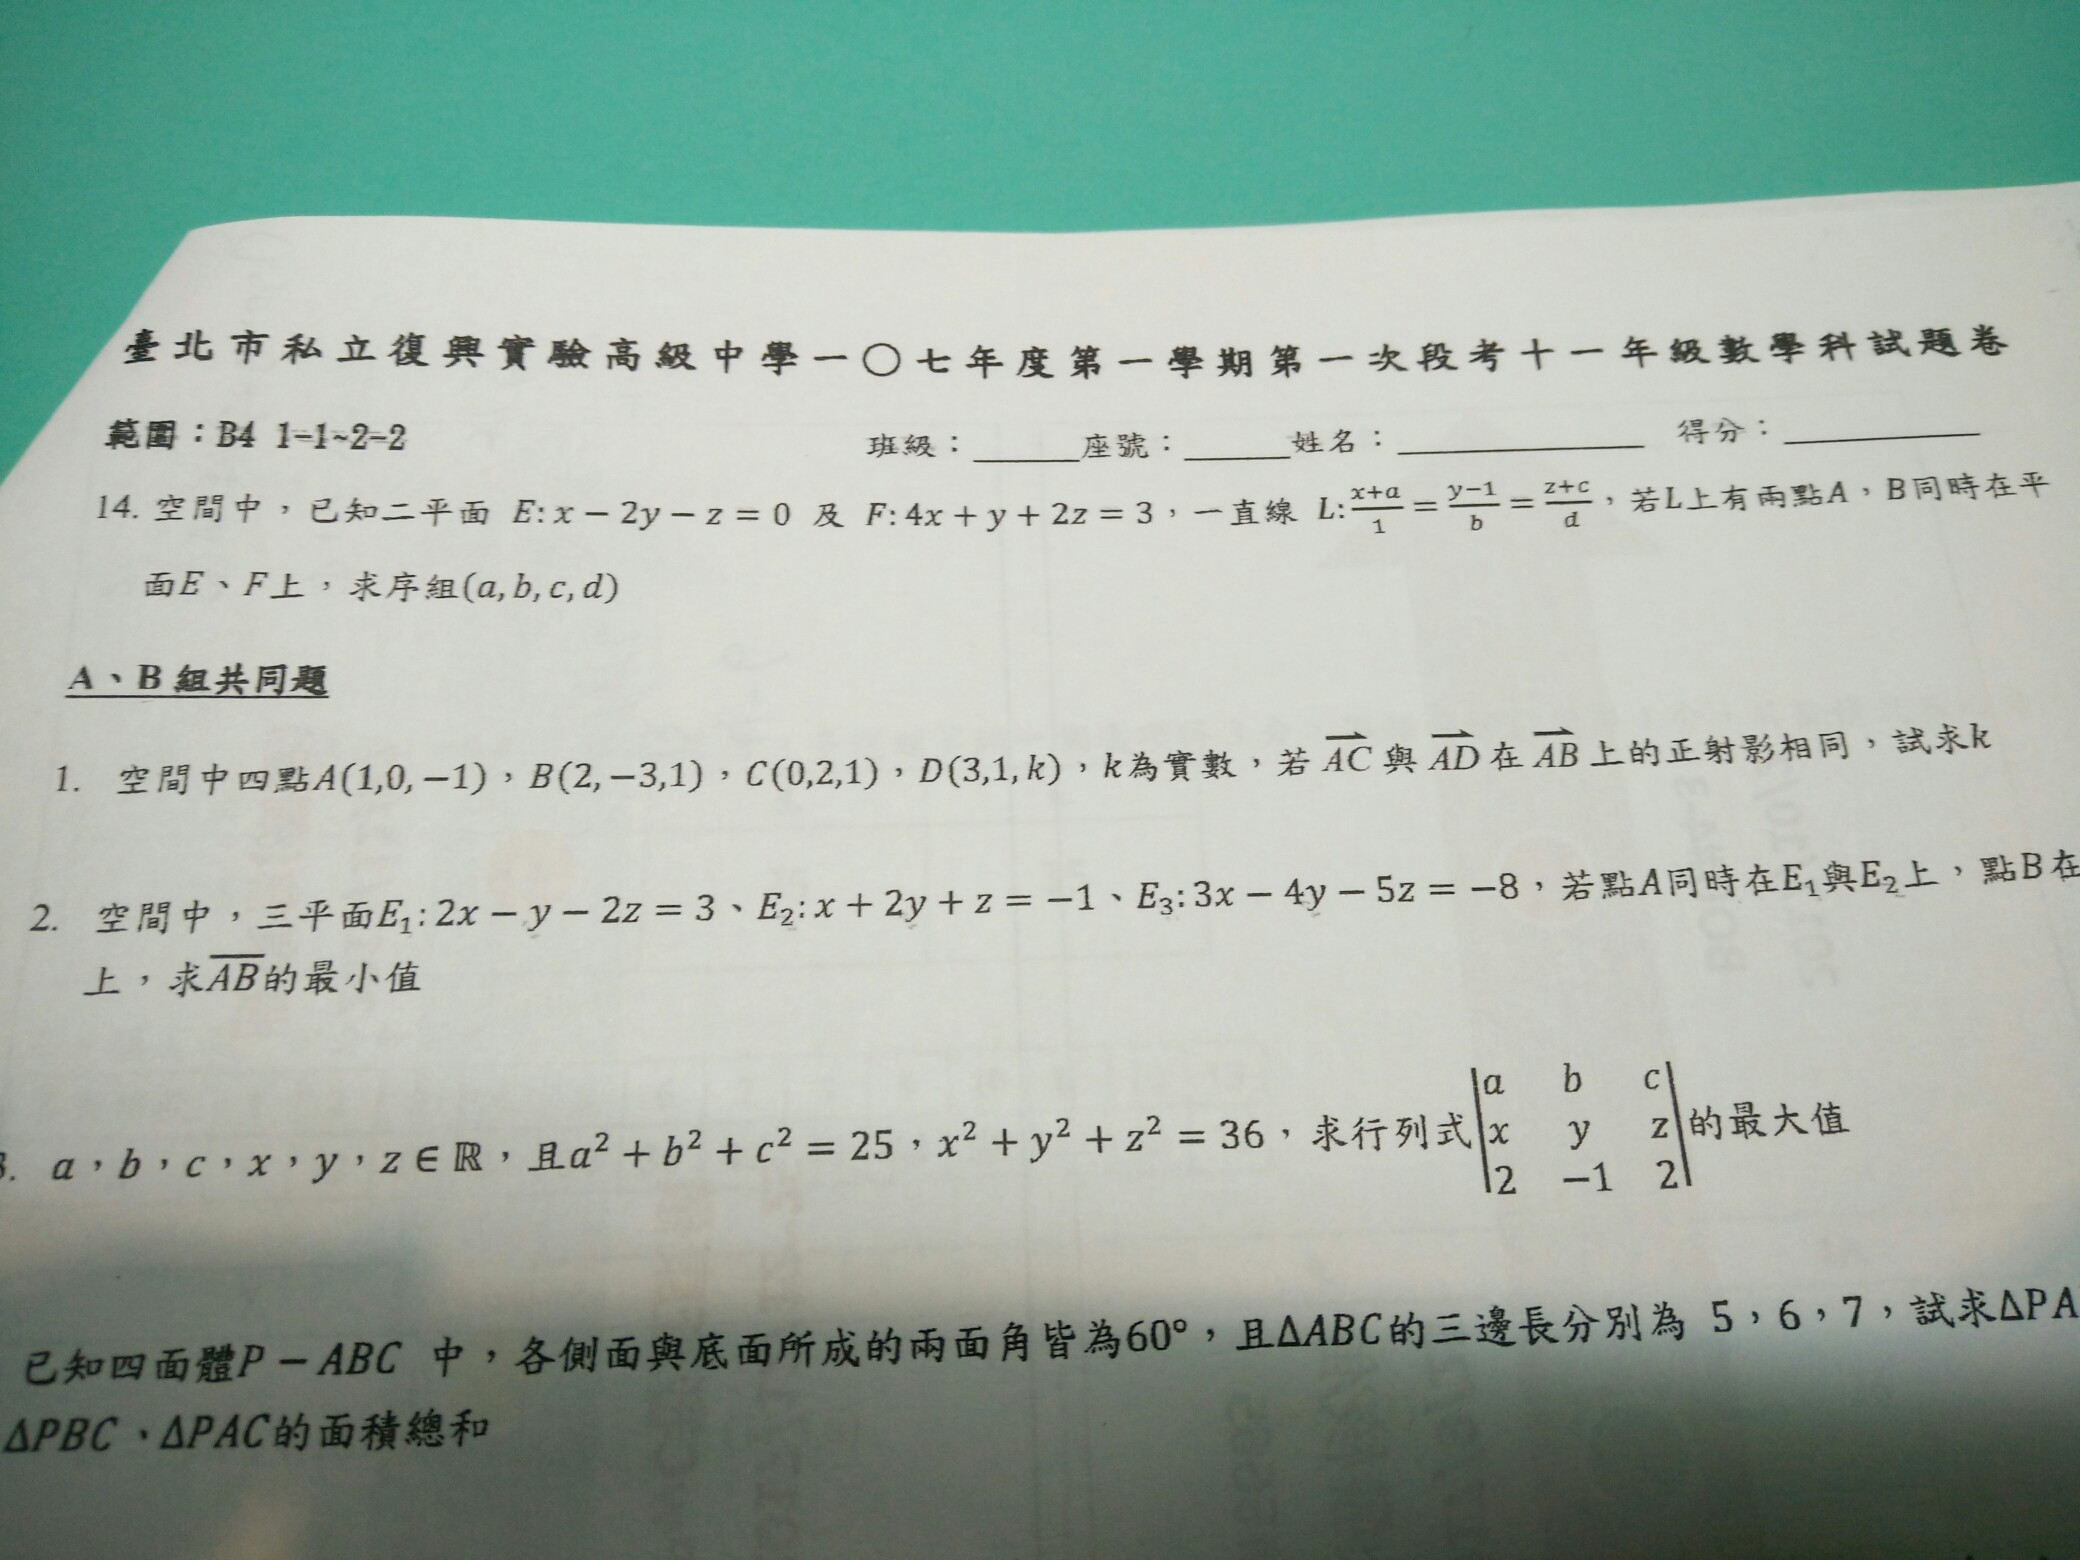 臺北市私立復興實驗高級中學一〇七年度第一學期第一次段考十一年級數學科試題卷
範圍：B4 1-1~2-2 班級：_____座號：_____姓名：___________ 得分：_________
14. 空間中，已知二平面 E: x − 2y − z = 0 及 F: 4x + y + 2z = 3，一直線 L: (x+a)/1 = (y−1)/b = (z+c)/d，若L上有兩點A，B同時在平
面E、F上，求序組(a, b, c, d)
A、B 組共同題
1. 空間中四點A(1,0, −1)，B(2, −3,1)，C(0,2,1)，D(3,1, k)，k為實數，若 AC 與 AD 在 AB 上的正射影相同，試求k
2. 空間中，三平面E₁: 2x − y − 2z = 3、E₂: x + 2y + z = −1、E₃: 3x − 4y − 5z = −8，若點A同時在E₁與E₂上，點B在
上，求AB的最小值
3. a，b，c，x，y，z ∈ ℝ，且a² + b² + c² = 25，x² + y² + z² = 36，求行列式|a b c
x y z
2 −1 2|的最大值
已知四面體P − ABC 中，各側面與底面所成的兩面角皆為60°，且ΔABC的三邊長分別為 5，6，7，試求ΔPA
ΔPBC、ΔPAC的面積總和